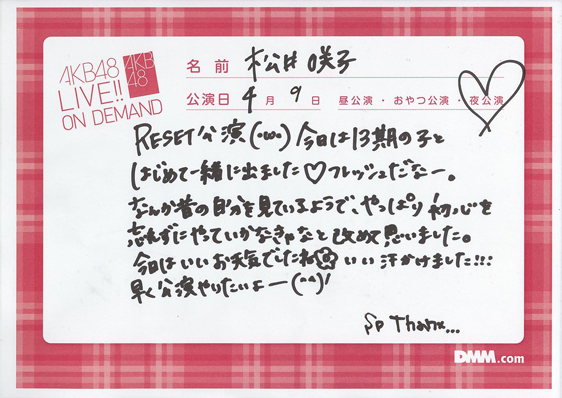 AKB48
LIVE!!
ON DEMAND
AKB
48
名前 松井咲子
公演日 4月9日 昼公演・おやつ公演・夜公演
RESET公演(・ω・)今日は13期の子と
はじめて一緒に出ました♡フレッシュだなー。
なんか昔の自分を見ているようで、やっぱり初心を
忘れずにやっていかなきゃなと改めて思いました。
今日はいいお天気でしたね いい汗かけました!!!
早く公演やりたいよー(^^)!
So Thanx...
DMM.com